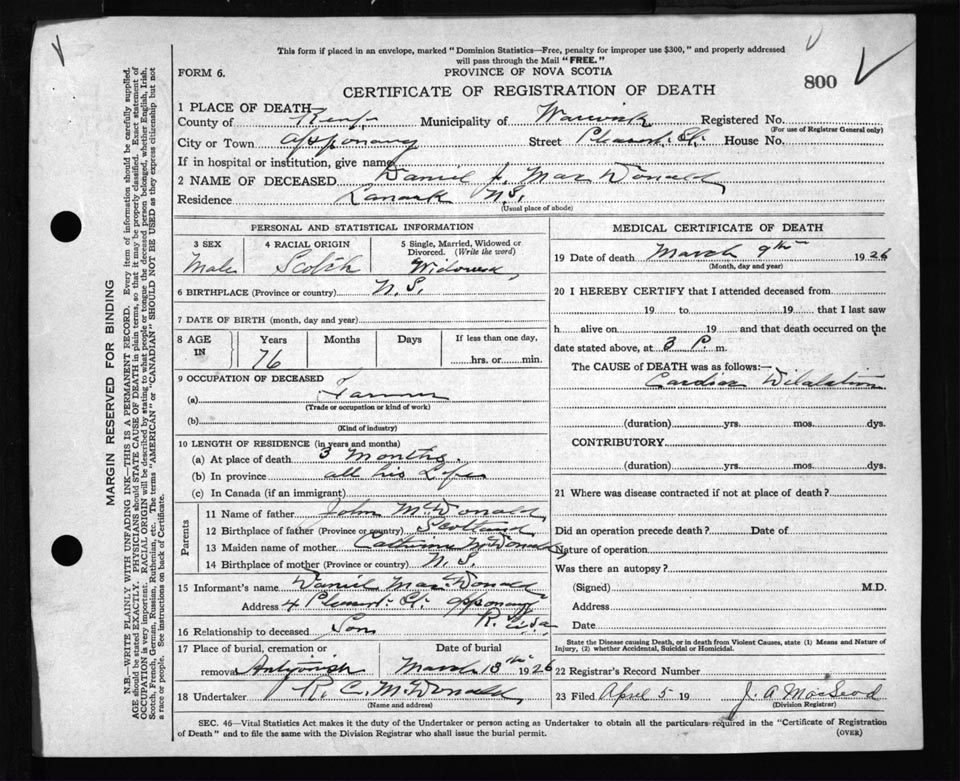 This form if placed in an envelope, marked "Dominion Statistics—Free, penalty for improper use $300," and properly addressed
will pass through the Mail "FREE."
FORM 6.
PROVINCE OF NOVA SCOTIA
800
CERTIFICATE OF REGISTRATION OF DEATH
1 PLACE OF DEATH
County of Kent Municipality of Warwick Registered No.
(For use of Registrar General only)
City or Town Apponaug Street Pleasant St. House No.
If in hospital or institution, give name
2 NAME OF DECEASED Daniel J. MacDonald
Residence Lanark N.S.
(Usual place of abode)
PERSONAL AND STATISTICAL INFORMATION
3 SEX 4 RACIAL ORIGIN 5 Single, Married, Widowed or Divorced. (Write the word)
Male Scotch Widowed
6 BIRTHPLACE (Province or country) N.S.
7 DATE OF BIRTH (month, day and year)
8 AGE IN Years Months Days If less than one day,
76 hrs. or min.
9 OCCUPATION OF DECEASED
(a) Farmer
(Trade or occupation or kind of work)
(b)
(Kind of industry)
10 LENGTH OF RESIDENCE (in years and months)
(a) At place of death 3 Months
(b) In province all his Life
(c) In Canada (if an immigrant)
Parents
11 Name of father John McDonald
12 Birthplace of father (Province or country) Scotland
13 Maiden name of mother Catherine McDonald
14 Birthplace of mother (Province or country) N.S.
15 Informant's name Daniel MacDonald
Address 4 St. Apponaug
R.
16 Relationship to deceased Son
17 Place of burial, cremation or removal Date of burial
Antigonish March 13th 1926
18 Undertaker R. C. McDonald
(Name and address)
MEDICAL CERTIFICATE OF DEATH
19 Date of death March 9th 1926
(Month, day and year)
20 I HEREBY CERTIFY that I attended deceased from
19 to 19 that I last saw
h alive on 19 and that death occurred on the
date stated above, at 3 P. m.
The CAUSE of DEATH was as follows:—
Cardiac Dilatation
(duration) yrs. mos. dys.
CONTRIBUTORY
(duration) yrs. mos. dys.
21 Where was disease contracted if not at place of death?
Did an operation precede death? Date of
Nature of operation
Was there an autopsy?
(Signed) M.D.
Address
Date
State the Disease causing Death, or in death from Violent Causes, state (1) Means and Nature of
Injury, (2) whether Accidental, Suicidal or Homicidal.
22 Registrar's Record Number
23 Filed April 5 19 J. A. MacLeod
(Division Registrar)
SEC. 46—Vital Statistics Act makes it the duty of the Undertaker or person acting as Undertaker to obtain all the particulars required in the "Certificate of Registration
of Death" and to file the same with the Division Registrar who shall issue the burial permit.
(OVER)
MARGIN RESERVED FOR BINDING
N.B.—WRITE PLAINLY WITH UNFADING INK—THIS IS A PERMANENT RECORD. Every item of information should be carefully supplied.
AGE should be stated EXACTLY. PHYSICIANS should STATE CAUSE OF DEATH in plain terms, so that it may be properly classified. Exact statement of
OCCUPATION is very important. RACIAL ORIGIN will be described by stating to what people or tongue the deceased person belonged, whether English, Irish,
Scotch, French, German, Russian, Ruthenian, etc. The terms "AMERICAN" or "CANADIAN" SHOULD NOT BE USED as they express citizenship but not
a race or people. See instructions on back of Certificate.